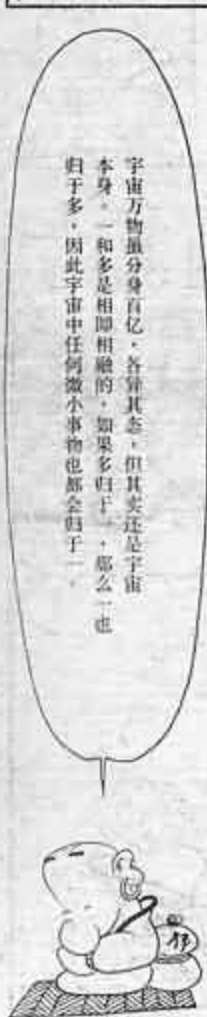 宇宙万物虽分身百亿，各异其态，但其实还是宇宙
本身。一和多是相即相融的，如果多归于一，那么一也
归于多，因此宇宙中任何微小事物也都会归于一。